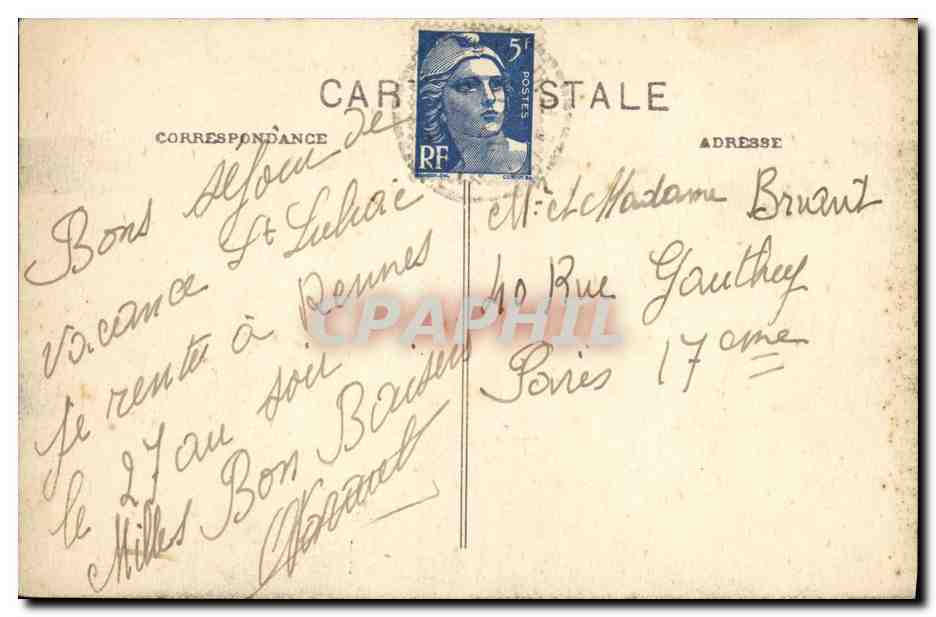 CARTE POSTALE
CORRESPONDANCE
ADRESSE
5F
POSTES
RF
Bons séjour de
vacance St
je rente à Rennes
le 27 au soir
Milles Bon Baisers
Mr et Madame Bruant
40 Rue Gauthey
Paris 17eme
CPAPHIL